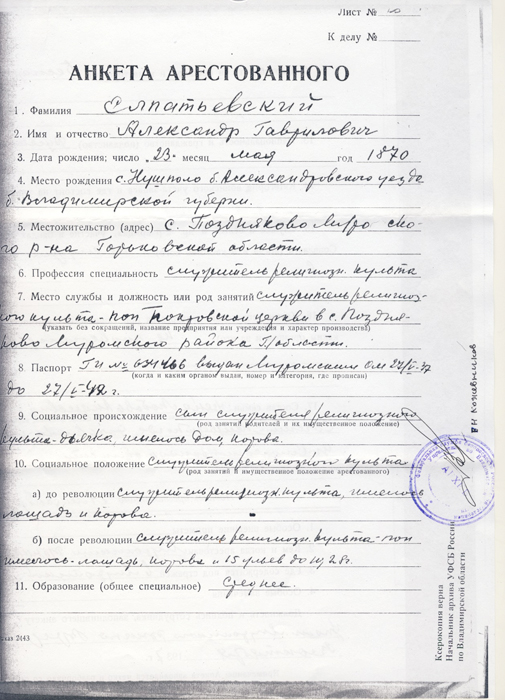 Лист №
К делу №
АНКЕТА АРЕСТОВАННОГО
1. Фамилия Елпатьевский
2. Имя и отчество Александр Гаврилович
3. Дата рождения; число 23 месяц мая год 1870
4. Место рождения с. Нушполо б. Александровского уезда
б. Владимирской губернии.
5. Местожительство (адрес) с. Поздняково Муромско-
го р-на Горьковской области.
6. Профессия специальность служитель религиозн. культа
7. Место службы и должность или род занятий служитель религиоз-
ного культа-поп Покровской церкви в с. Поздня-
(указать без сокращений, название предприятия или учреждения и характер производства)
ково Муромского района Г/области.
8. Паспорт № выдан Муромским
(когда и каким органом выдан, номер и категория, где прописан)
до
9. Социальное происхождение сын служителя религиозного
(род занятий родителей и их имущественное положение)
культа-дьячка, имелось дом, корова.
10. Социальное положение служитель религиозного культа
(род занятий и имущественное положение арестованного)
а) до революции служитель религиозн. культа, имелось
лошадь и корова.
б) после революции служитель религиозн. культа-поп
имелось-лошадь, корова и 15 ульев до 1928 г.
11. Образование (общее специальное) среднее.
Ксерокопия верна
Начальник архива УФСБ России
по Владимирской области
ВН Кожевников